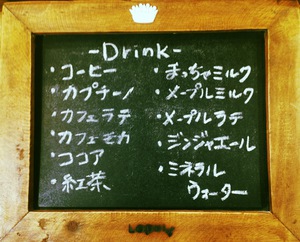 -Drink-
・コーヒー
・カプチーノ
・カフェラテ
・カフェモカ
・ココア
・紅茶
・まっちゃミルク
・メープルミルク
・メープルラテ
・ジンジャエール
・ミネラル
ウォーター